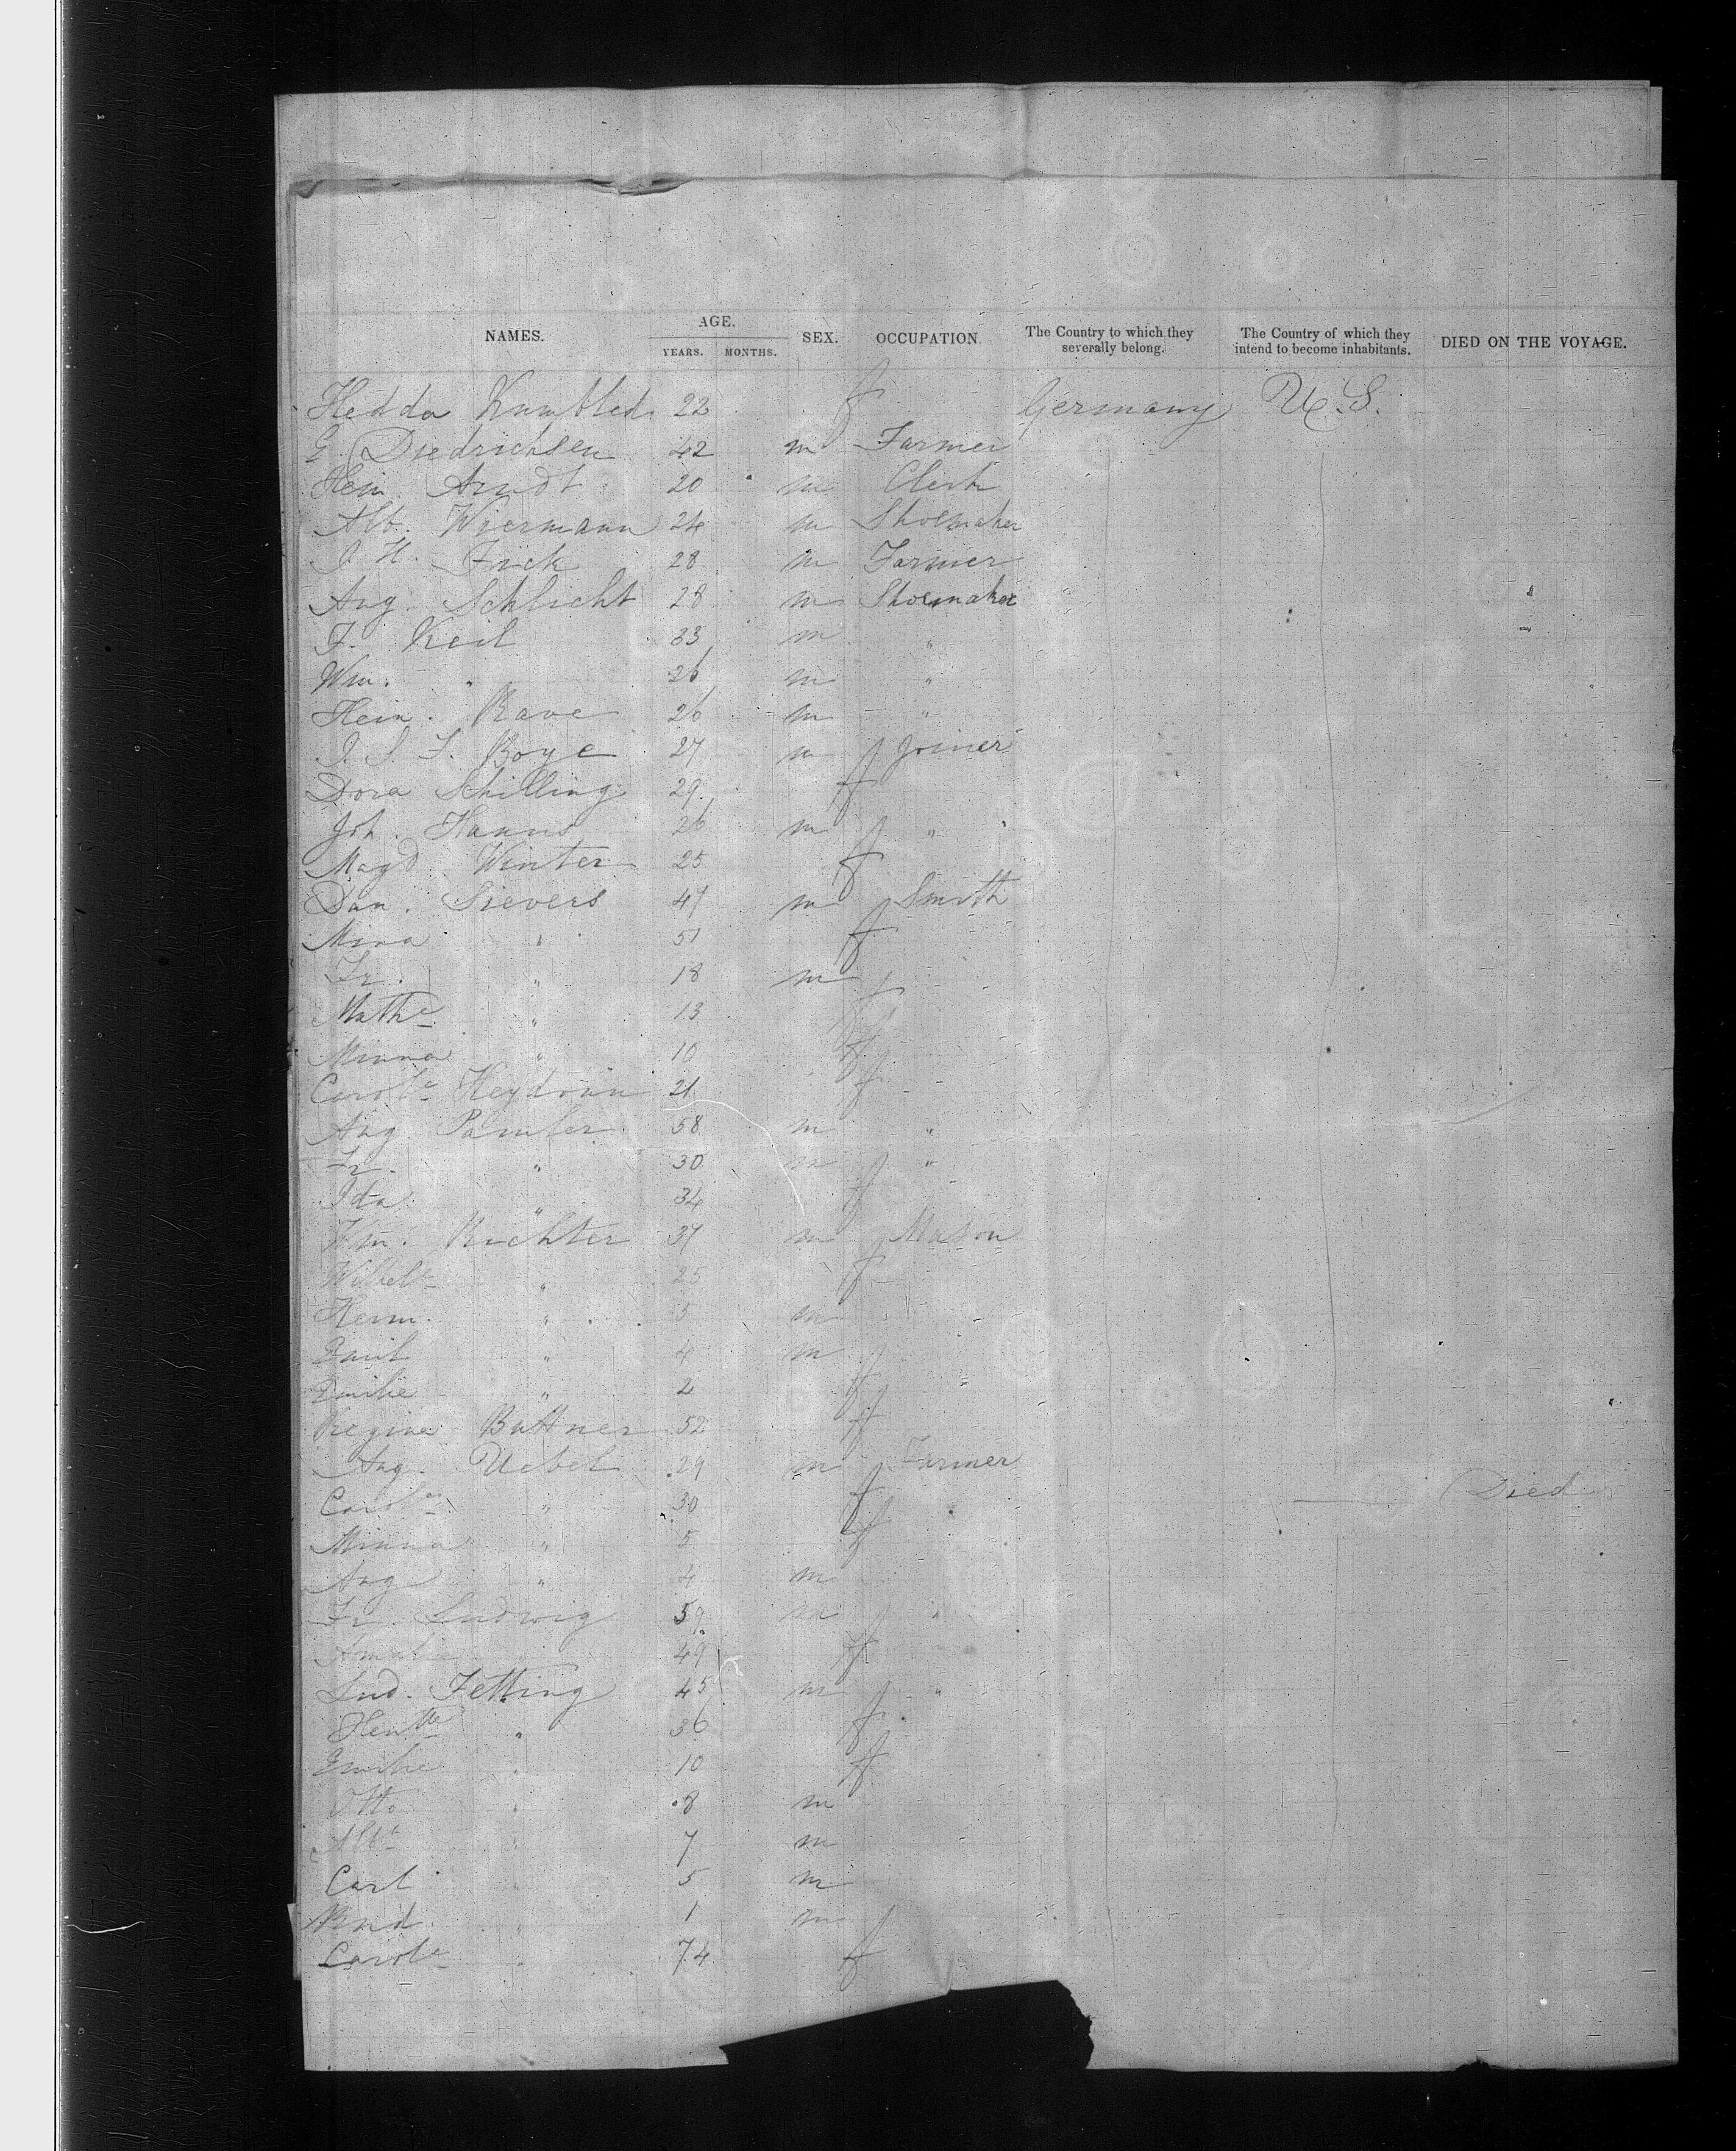 NAMES. AGE. YEARS. MONTHS. SEX. OCCUPATION. The Country to which they severally belong. The Country of which they intend to become inhabitants. DIED ON THE VOYAGE.
Hedda 22 f Germany U.S.
G. Diedrichsen 42 m Farmer
Hein. Arndt 20 m Clerk
Alb. Wiermann 24 m Shoemaker
J. H. Fick 28 m Farmer
Aug. Schlicht 28 m Shoemaker
F. Keil 33 m "
Wm. " 26 m "
Hein. Rave 26 m "
J. S. F. Boye 27 m Joiner
Dora Schilling 29 f
Joh. Hanns 26 m "
Magd. Winter 25 f
Dan. Sievers 47 m Smith
Mina " 51 f
Fr. " 18 m
Mathe " 13 f
Minna " 10 f
Carole Heydorn 21 f
Aug. 58 m "
Fr. " 30 m "
Ida " 34 f
Wm. Richter 37 m Mason
Wilhele " 25 f
Herm. " 5 m
Emil " 4 m
Emilie " 2 f
Regine Buttner 52 f
Aug. Uebel 29 m Farmer
Carole " 30 f Died
Minna " 5 f
Aug " 4 m
Fr. Ludwig 59 m "
Amalie 49 f
Lud. Fetting 45 m "
Hentte " 36 f
Emilie " 10 f
Otto " 8 m
" 7 m
Carl " 5 m
Rud. " 1 m
Carole " 74 f